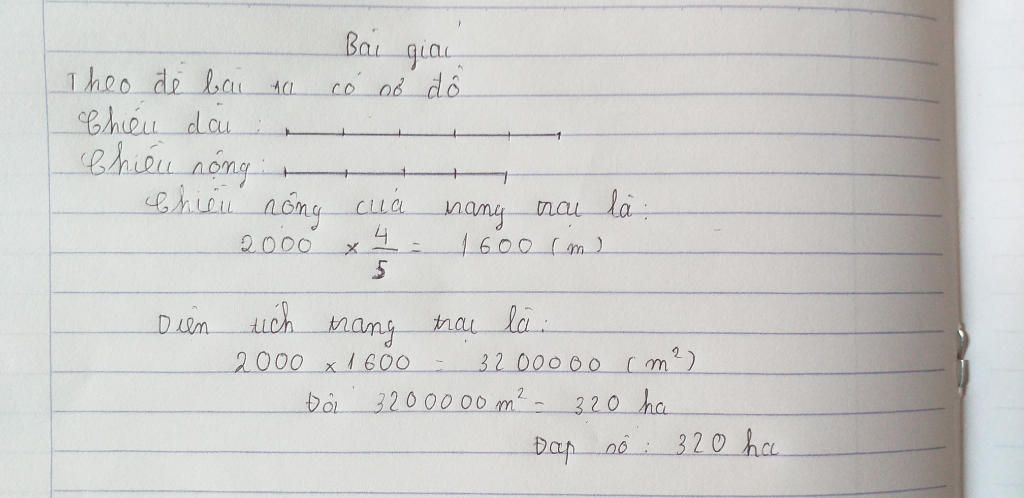 Bài giải
Theo đề bài ta có sơ đồ
Chiều dài :
Chiều rộng :
Chiều rộng của trang trại là :
2000 × 4/5 = 1600 (m)
Diện tích trang trại là :
2000 × 1600 = 3200000 (m²)
Đổi 3200000 m² = 320 ha
Đáp số : 320 ha